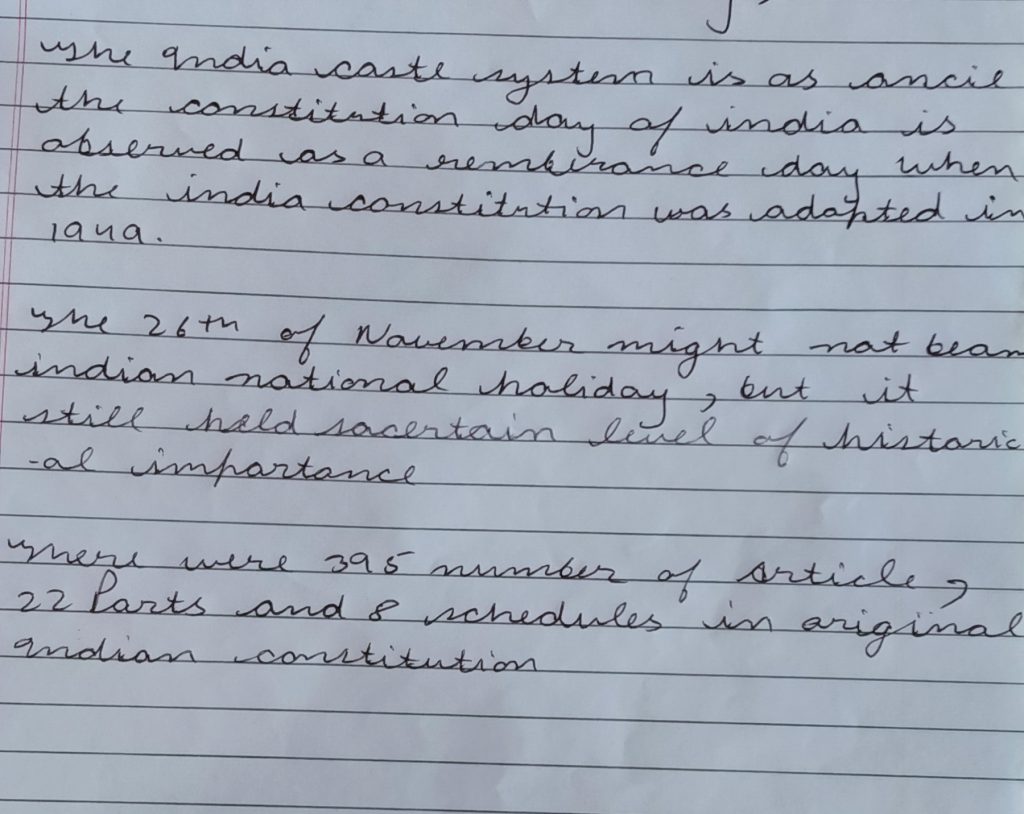 The India caste system is as ancie
the constitution day of india is
observed as a rembirance day when
the india constitution was adopted in
1949.
The 26th of November might not bean
indian national holiday, but it
still hold sacertain level of historic
-al importance
There were 395 number of Article,
22 Parts and 8 schedules in original
Indian constitution